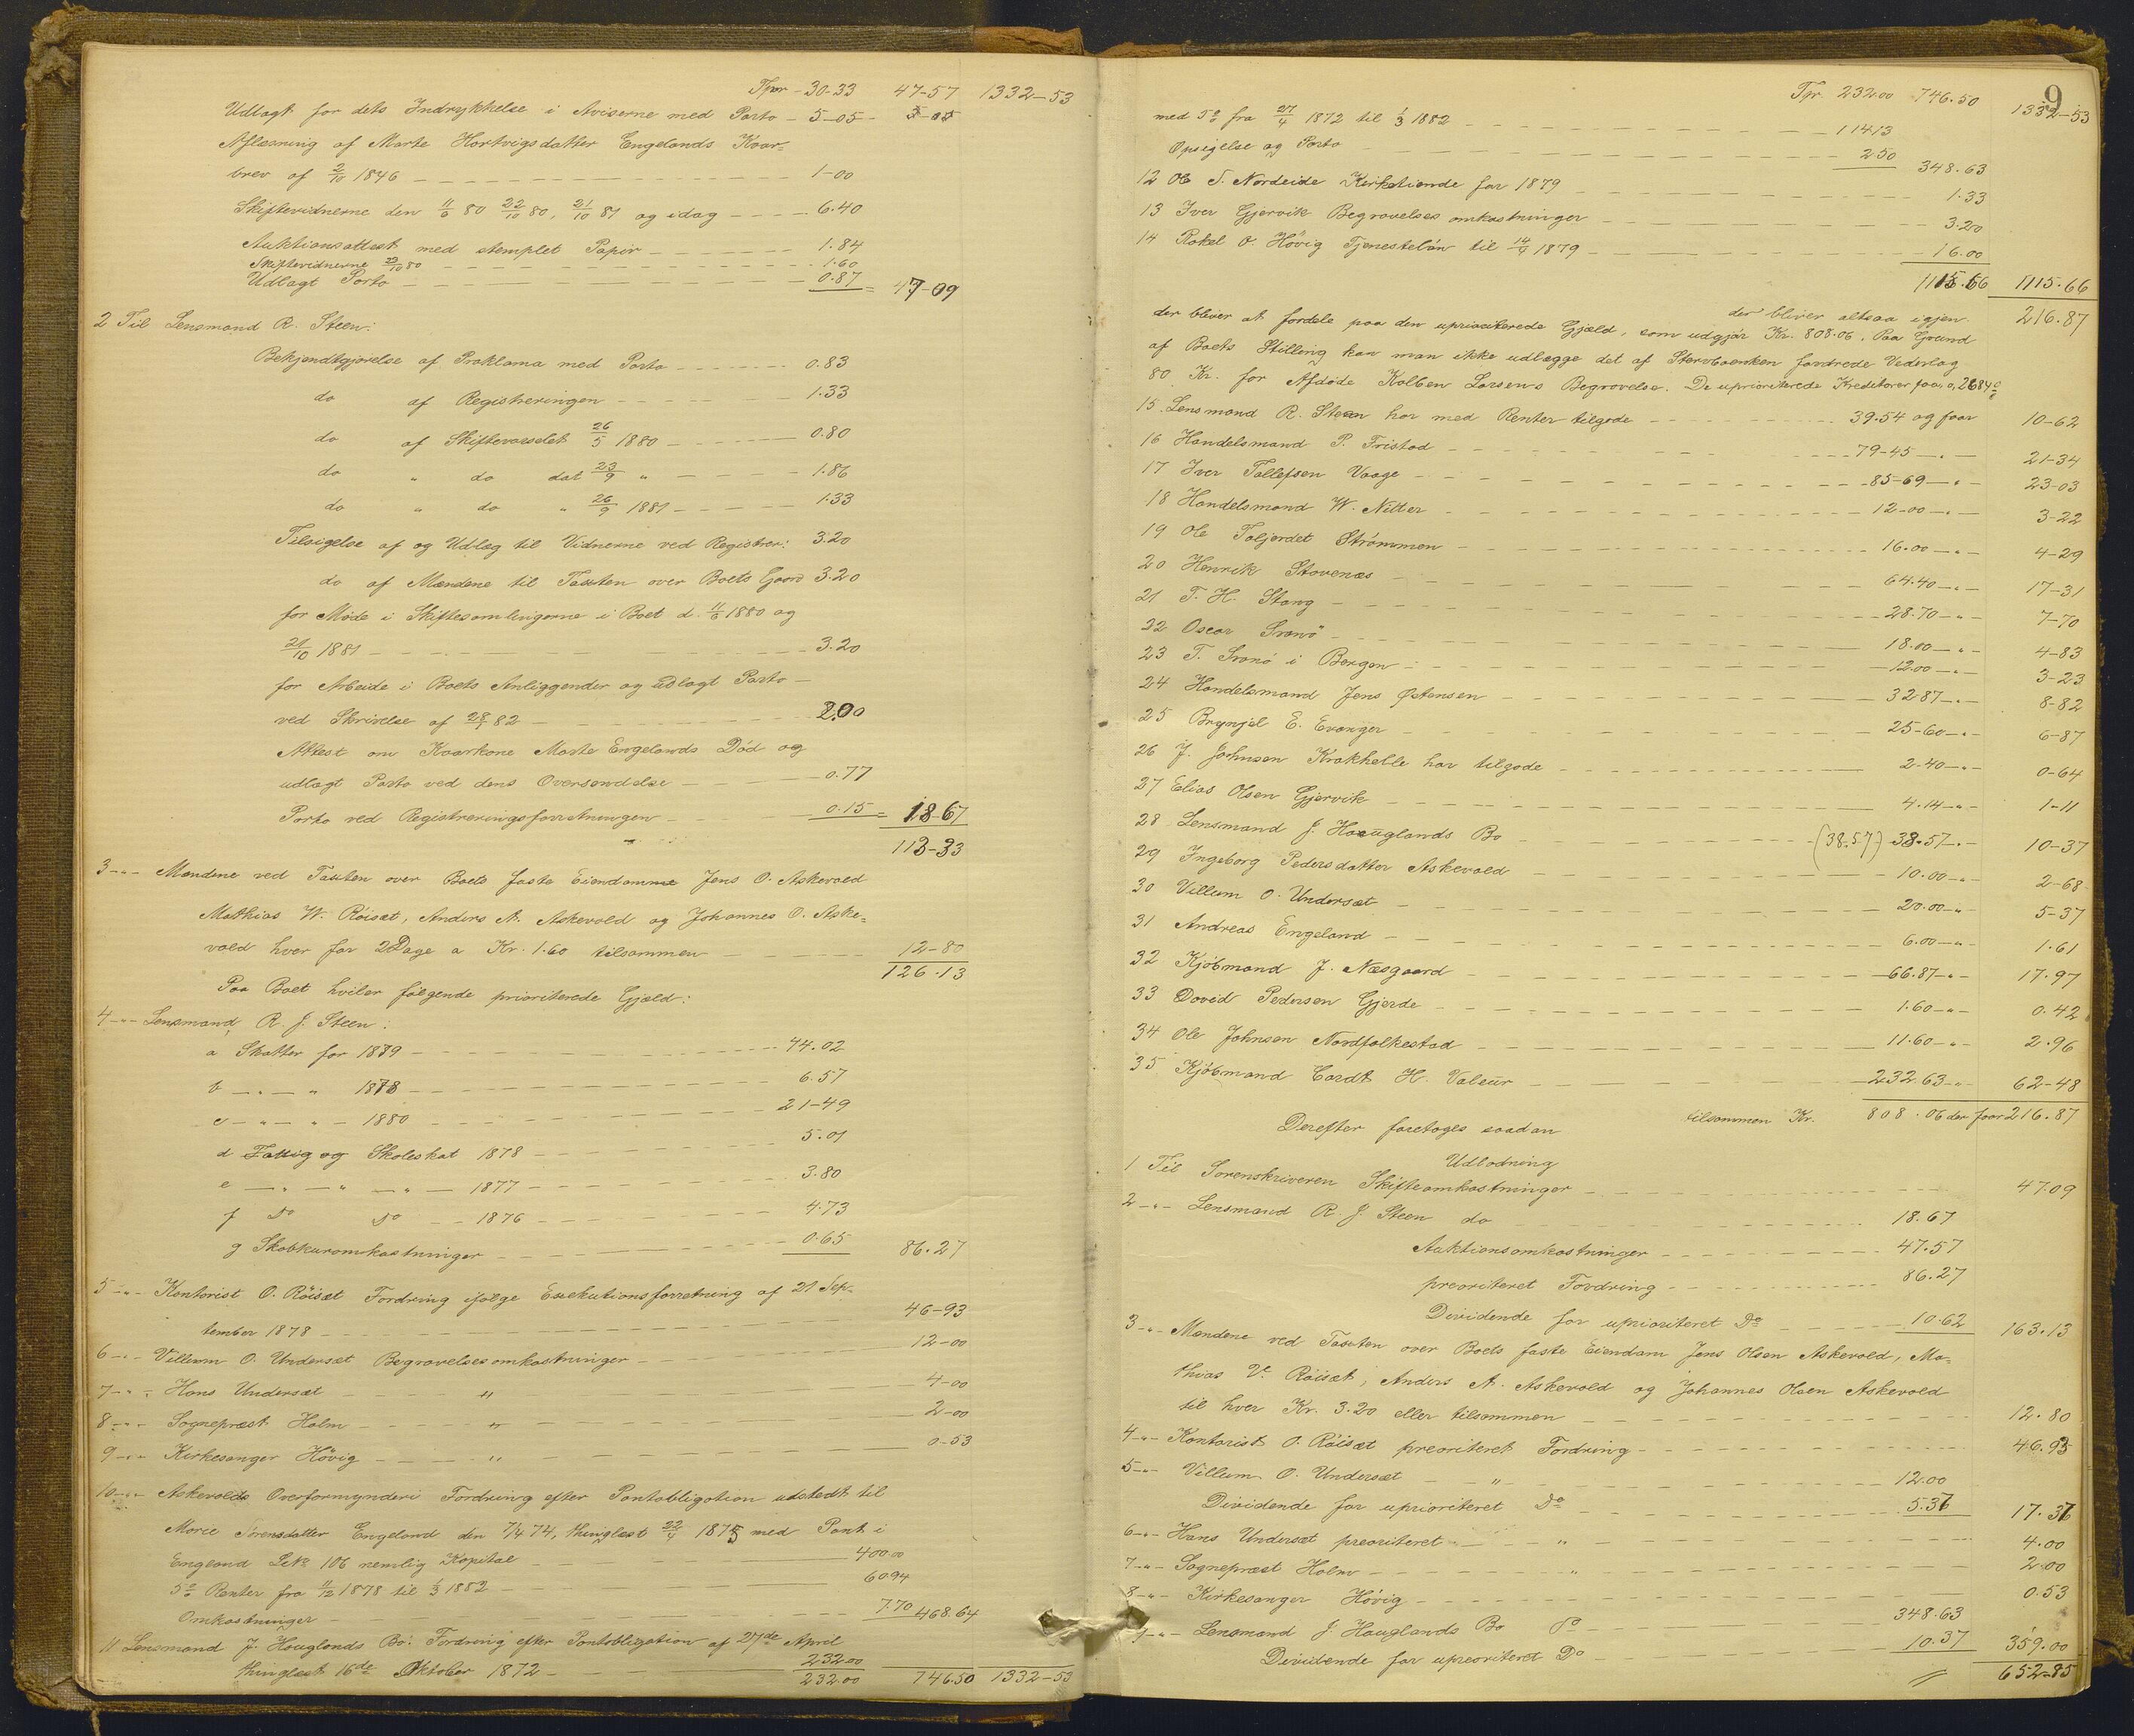 Tpor - 30-33 47-57 1332-53
Udlagt for dets Indrykkelse i Aviserne med Porto - 5-05-
Aflæsning af Marte Hartvigsdatter Engelands Kaar-
brev af 2/10 1846 - 1-00
Skiftevidnerne den 11/6 80 22/10 80, 21/10 81 og idag - 6.40
Auktionsattest med stemplet Papir - 1.84
Skiftevidnerne 23/10 80 - 1.60
Udlagt Porto - 0.87 = 47-09
2 Til Lensmand R. Steen:
Bekjendtgjørelse af Proklama med Porto - 0.83
do af Registreringen - 1.33
do af Skiftevarselet 26/5 1880 - 0.80
do " do dat 23/9 " - 1.86
do " do " 26/9 1881 - 1.33
Tilsigelse af og Udlæg til Vidnerne ved Registrer: 3.20
do af Mændene til Taxten over Boets Gaard 3.20
for Møde i Skiftesamlingerne i Boet d. 11/6 1880 og
21/10 1881 - 3.20
for Arbeide i Boets Anliggender og udlagt Porto -
ved Skrivelse af 28/1 82 - 2.00
Attest om Kaarkone Marte Engelands Död og
udlagt Porto ved dens Oversendelse - 0.77
Porto ved Registreringsforretningen - 0.15 = 18-67
113-33
3 -"- Mændene ved Taxten over Boets faste Eiendomme Jens O. Askevold
Mathias W. Röisæt, Anders A. Askevold og Johannes O. Aske-
vold hver for 2 Dage a Kr. 1.60 tilsammen - 12-80
126.13
Paa Boet hviler følgende prioriterede Gjæld:
4 -"- Lensmand R. J. Steen:
a Skatter for 1879 - 44.02
b -"- " 1878 - 6.57
c -"- " - 1880 - 21-49
d Fattig og Skoleskat 1878 - 5.01
e -"- " -"- 1877 - 3.80
f Do Do - 1876 - 4.73
g Skabkuromkostninger - 0.65 86.27
5 -"- Kontorist O. Röisæt Fordring ifølge Exekutionsforretning af 21 Sep-
tember 1878 - 46-93
6 -"- Villum O. Undersæt Begravelsesomkostninger - 12-00
7 -"- Hans Undersæt - " - 4-00
8 -"- Sognepræst Holm - " - 2-00
9 -"- Kirkesanger Hövig - " - 0-53
10 -"- Askevolds Overformynderi Fordring efter Pantobligation udstedt til
Marie Sørensdatter Engeland den 7/4 74, thinglæst 22/4 1875 med Pant i
Engeland LNo 106 nemlig Kapital - 400.00
5% Renter fra 11/12 1878 til 1/3 1882 - 60.94
Omkostninger - 7.70 468.64
11 Lensmand J. Hauglands Bo: Fordring efter Pantobligation af 27de April 232.00
thinglæst 16de Oktober 1872 - 232.00 746.50 1332-53
9
Tpr 232.00 746.50 1332-53
med 5% fra 27/4 1872 til 1/3 1882 - 114.13
Opsigelse og Porto - 2.50 348.63
12 Ole S. Nordeide Kirketiende for 1879 - 1.33
13 Iver Gjervik Begravelsesomkostninger - 3.20
14 Rakel O. Hövig Tjenesteløn til 14/4 1879 - 16.00
1115.66 1115.66
der bliver altsaa igjen 216.87
der bliver at fordele paa den uprioriterede Gjæld, som udgjør Kr. 808.06. Paa Grund
af Boets Stilling kan man ikke udlægge det af Stervboenken fordrede Vederlag
80 Kr. for Afdøde Kolben Larsens Begravelse. De uprioriterede Kreditorer faar 0,2684 %
15. Lensmand R. Steen har med Renter tilgode - 39.54 og faar 10-62
16 Handelsmand P. Tristad - 79-45 -"- 21-34
17 Iver Tollefsen Vaage - 85-69 -"- 23-03
18 Handelsmand W. Nitter - 12-00 -"- 3-22
19 Ole Toljerdet Strømmen - 16.00 -"- 4-29
20 Henrik Stavenæs - 64.40 -"- 17-31
21 T. H. Stang - 28.70 -"- 7-70
22 Oscar Svanö - 18.00 -"- 4-83
23 T. Svanö i Bergen - 12.00 -"- 3-23
24 Handelsmand Jens Østensen - 32.87 -"- 8-82
25 Brynjel E. Evanger - 25-60 -"- 6-87
26 J. Johnsen Krakhelle har tilgode - 2-40 -"- 0-64
27 Elias Olsen Gjervik - 4.14 -"- 1-11
28 Lensmand J. Hauglands Bo - (38.57) 38.57 -"- 10-37
29 Ingeborg Pedersdatter Askevold - 10.00 -"- 2-68
30 Villum O. Undersæt - 20.00 -"- 5-37
31 Andreas Engeland - 6.00 -"- 1.61
32 Kjöbmand J. Næsgaard - 66.87 -"- 17.97
33 David Pedersen Gjerde - 1.60 -"- 0.42
34 Ole Johnsen Nordfolkestad - 11.60 -"- 2.96
35 Kjöbmand Cordt H. Valeur - 232.63 -"- 62-48
tilsammen Kr. 808.06 der faar 216.87
Derefter foretoges saadan
Udlodning
1 Til Sorenskriveren Skifteomkostninger - 47.09
2 -"- Lensmand R. J. Steen do - 18.67
Auktionsomkostninger - 47.57
preoriteret Fordring - 86.27
Dividende for uprioriteret Do - 10.62 163.13
3 -"- Mændene ved Taxten over Boets faste Eiendom Jens Olsen Askevold, Ma-
thias V. Röisæt, Anders A. Askevold og Johannes Olsen Askevold
til hver Kr. 3.20 eller tilsammen - 12.80
4 -"- Kontorist O. Röisæt preoriteret Fordring - 46.93
5 -"- Villum O. Undersæt - " - 12.00
Dividende for uprioriteret Do - 5.37 17.37
6 -"- Hans Undersæt preoriteret - " - 4.00
7 -"- Sognepræst Holm - " - 2.00
8 -"- Kirkesanger Hövig - 0.53
9 -"- Lensmand J. Hauglands Bo Do - 348.63
Dividende for upreoriteret Do - 10.37 359.00
652-85